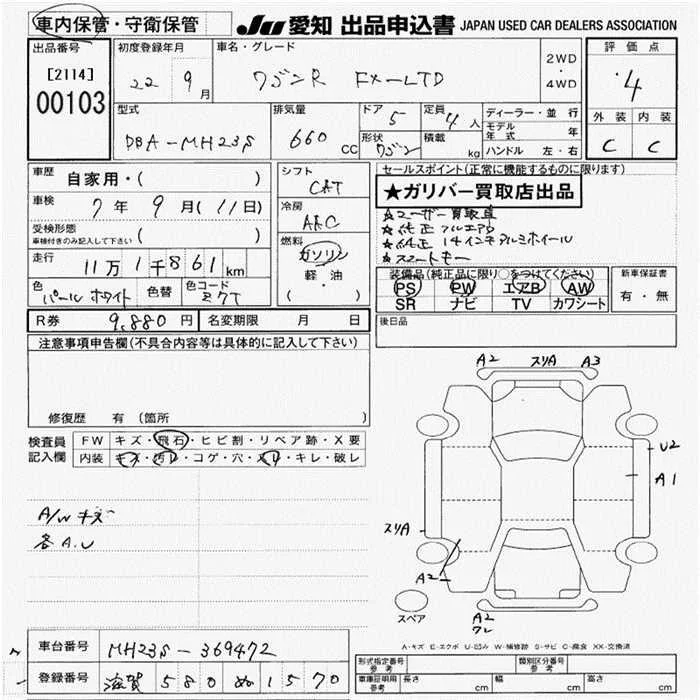 車内保管・守衛保管
JU 愛知 出品申込書 JAPAN USED CAR DEALERS ASSOCIATION
出品番号
[2114]
00103
初度登録年月
22 9月
車名・グレード
ワゴンR FX-LTD
2WD
・
4WD
評価点
4
外装 内装
C C
型式
DBA-MH23S
排気量
660 CC
ドア 5
形状 ワゴン
定員 4人
積載 kg
ディーラー・並行
モデル年式 年
ハンドル 左・右
車歴 自家用・( )
車検 7年 9月(11日)
受検形態
車検付きのみ記入して下さい ( )
走行 11万1千861km
色 パールホワイト 色替 色コード Z7T
シフト
CAT
冷房
AAC
燃料
ガソリン
軽・油
( ・ )
R券 9,880円 名変期限 月 日
セールスポイント(正常に機能するものに限ります)
★ガリバー買取店出品
★ユーザー買取車
★純正フルエアロ
★純正14インチアルミホイール
★スマートキー
装備品(純正品に限り○をつけてください)
PS PW エアB AW
SR ナビ TV カワシート
新車保証書
有・無
後日品
注意事項申告欄(不具合内容等は具体的に記入して下さい)
修復歴 有(箇所 )
検査員記入欄
FW キズ・飛石・ヒビ割・リペア跡・X要
内装 キズ・汚レ・コゲ・穴・スレ・キレ・破レ
A/Wキズ
各A.U
A2 スリA A3
U2
A1
スリA
A2
スペア
A2
ワレ
A-キズ E-エクボ U-凹み W-補修跡 S-サビ C-腐食 XX-交換済
車台番号 MH23S-369472
登録番号 滋賀 580 ぬ 1570
形式指定番号 参考
類別区分番号 参考
車庫証明用 参考 長さ cm 幅 cm 高さ cm